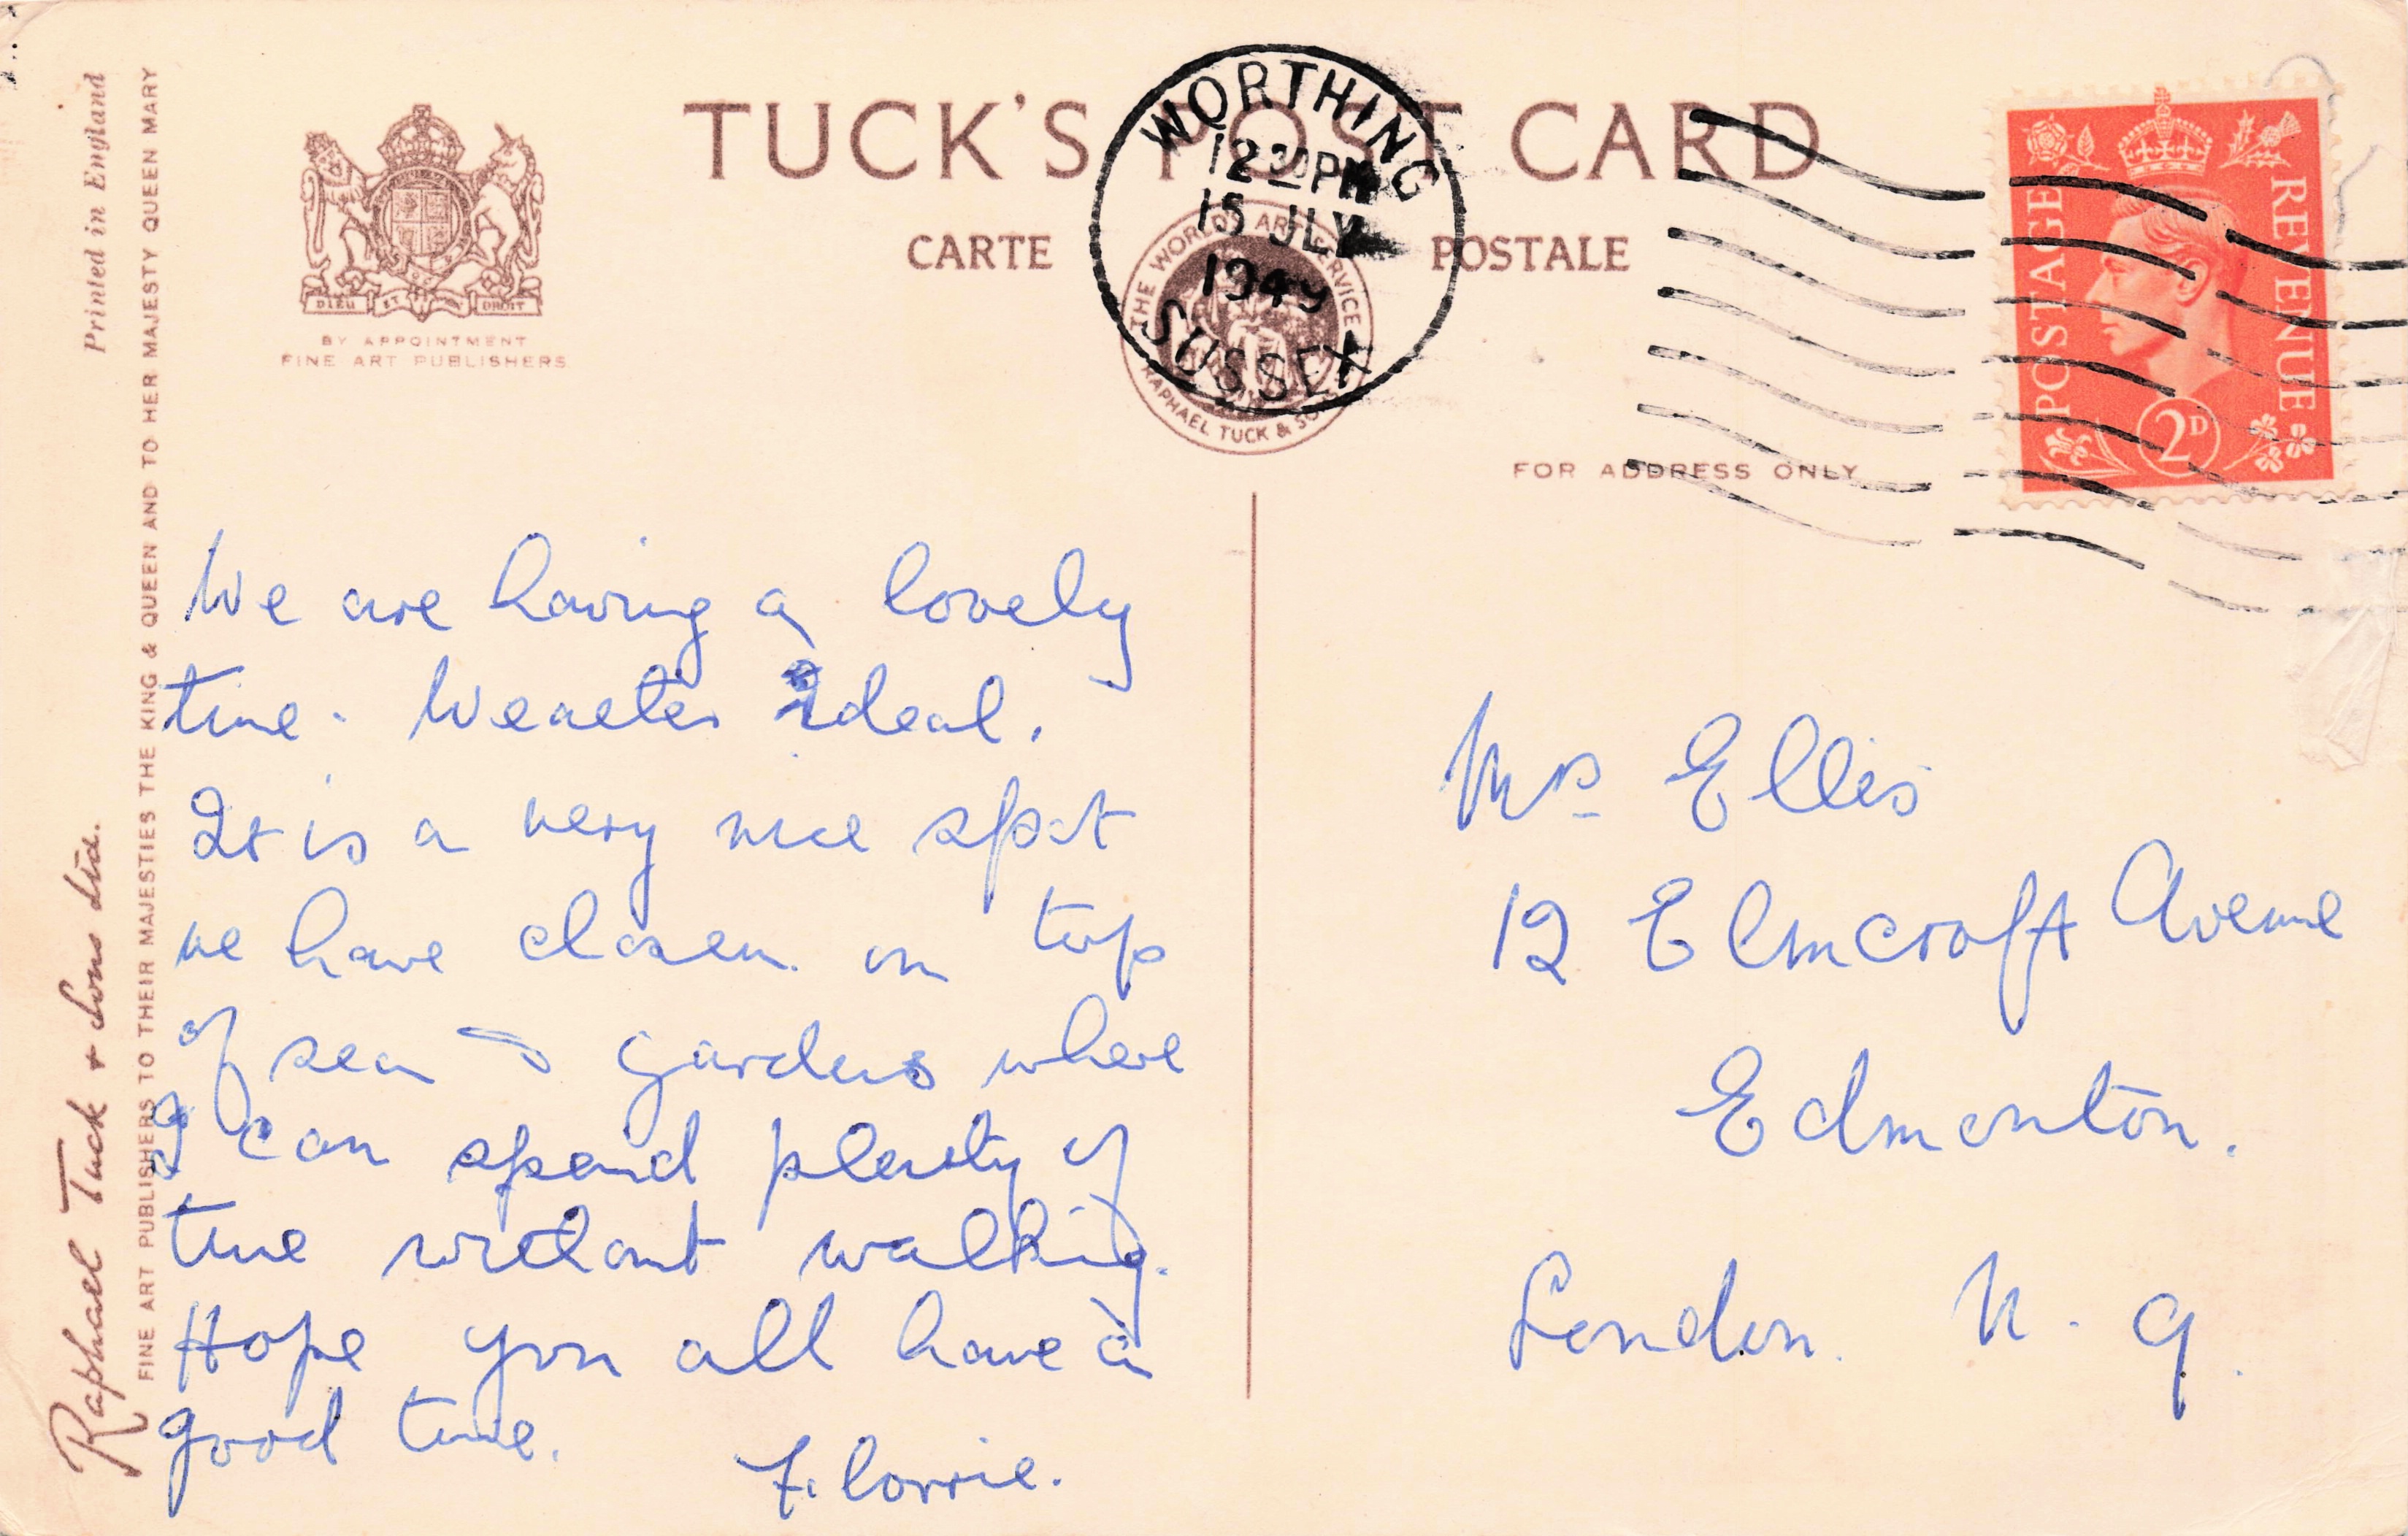 TUCK'S POST CARD
CARTE POSTALE
WORTHING
12 30 PM
15 JLY
1949
SUSSEX
THE WORLD'S ART SERVICE
RAPHAEL TUCK & SONS
POSTAGE REVENUE
2D
DIEU ET DROIT
BY APPOINTMENT
FINE ART PUBLISHERS
FOR ADDRESS ONLY
Printed in England
Raphael Tuck & Sons Ltd.
FINE ART PUBLISHERS TO THEIR MAJESTIES THE KING & QUEEN AND TO HER MAJESTY QUEEN MARY
We are having a lovely
time. Weather ideal.
It is a very nice spot
we have chosen on top
of sea & gardens where
I can spend plenty of
time without walking.
Hope you all have a
good time.
Florrie.
Mrs Ellis
12 Elmcroft Avenue
Edmonton.
London. N. 9.